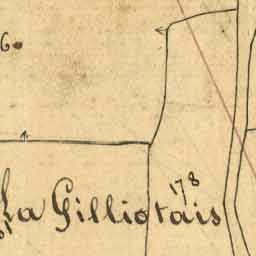 6.
178
La Gilliotais